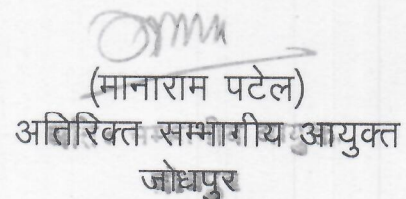 (मानाराम पटेल)
अतिरिक्त सम्भागीय आयुक्त
जोधपुर